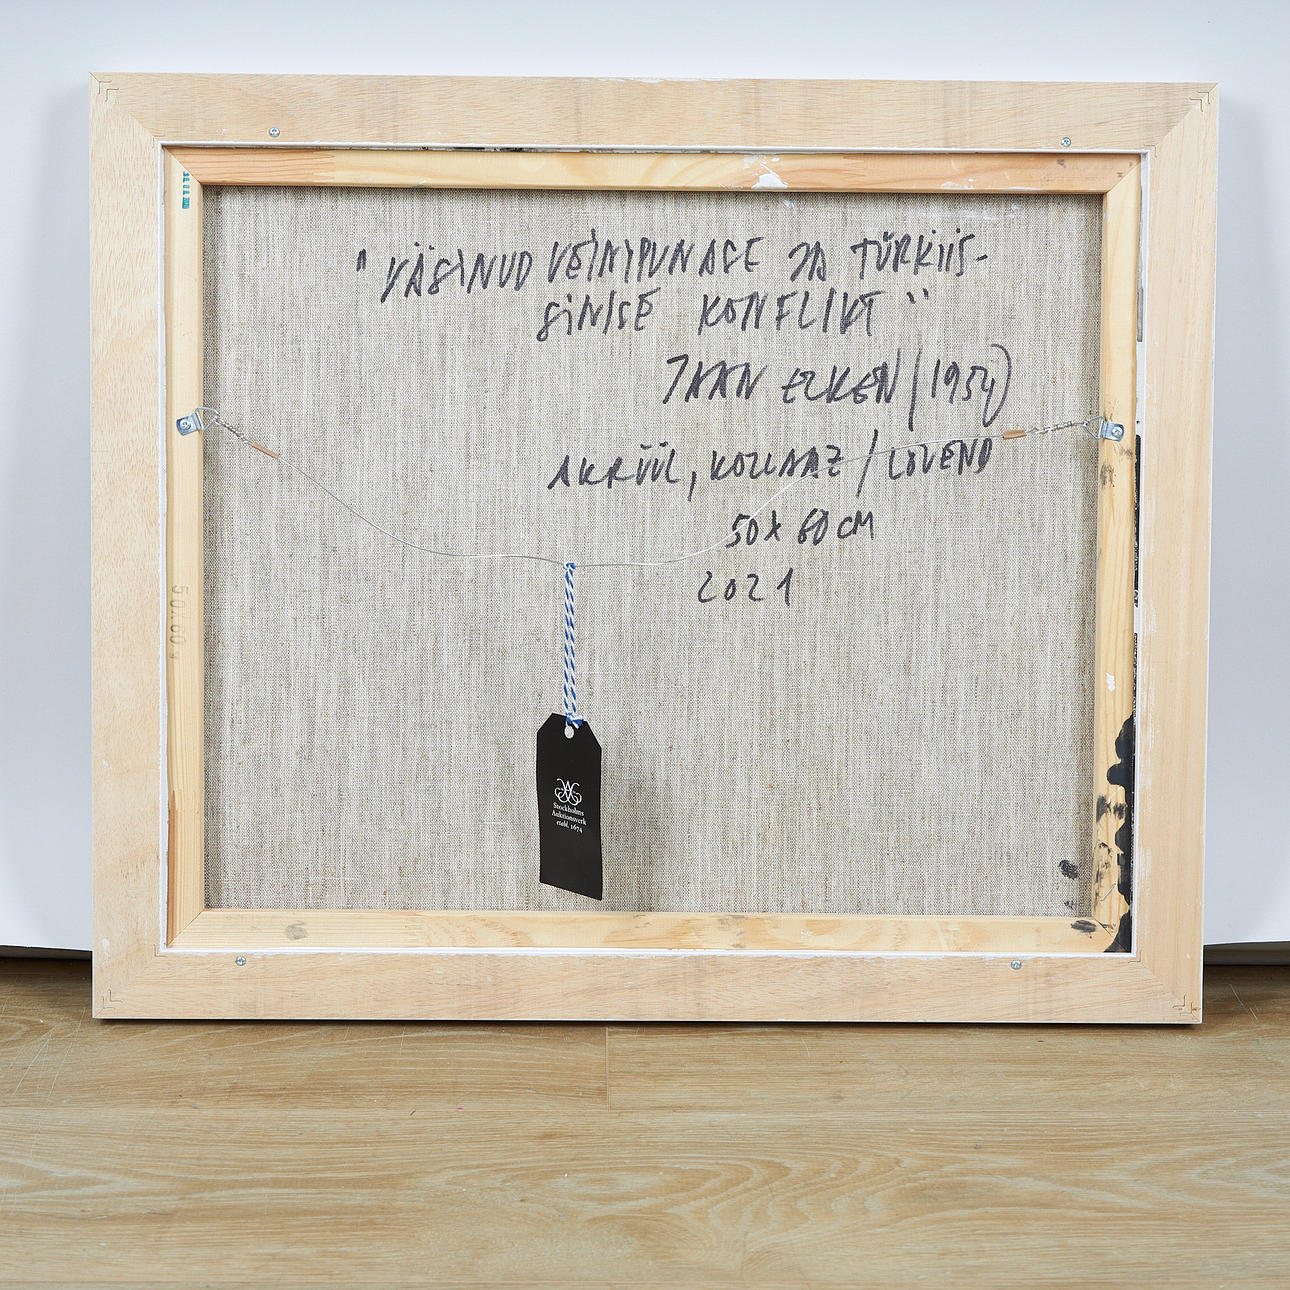 "VÄSINUD VEINIPUNASE JA TÜRKIIS-
SINISE KONFLIKT"
JAAN ELKEN (1954)
AKRÜÜL, KOLLAAZ / LÕUEND
50X60 CM
2021
50X60
Stockholms
Auktionsverk
etabl. 1674